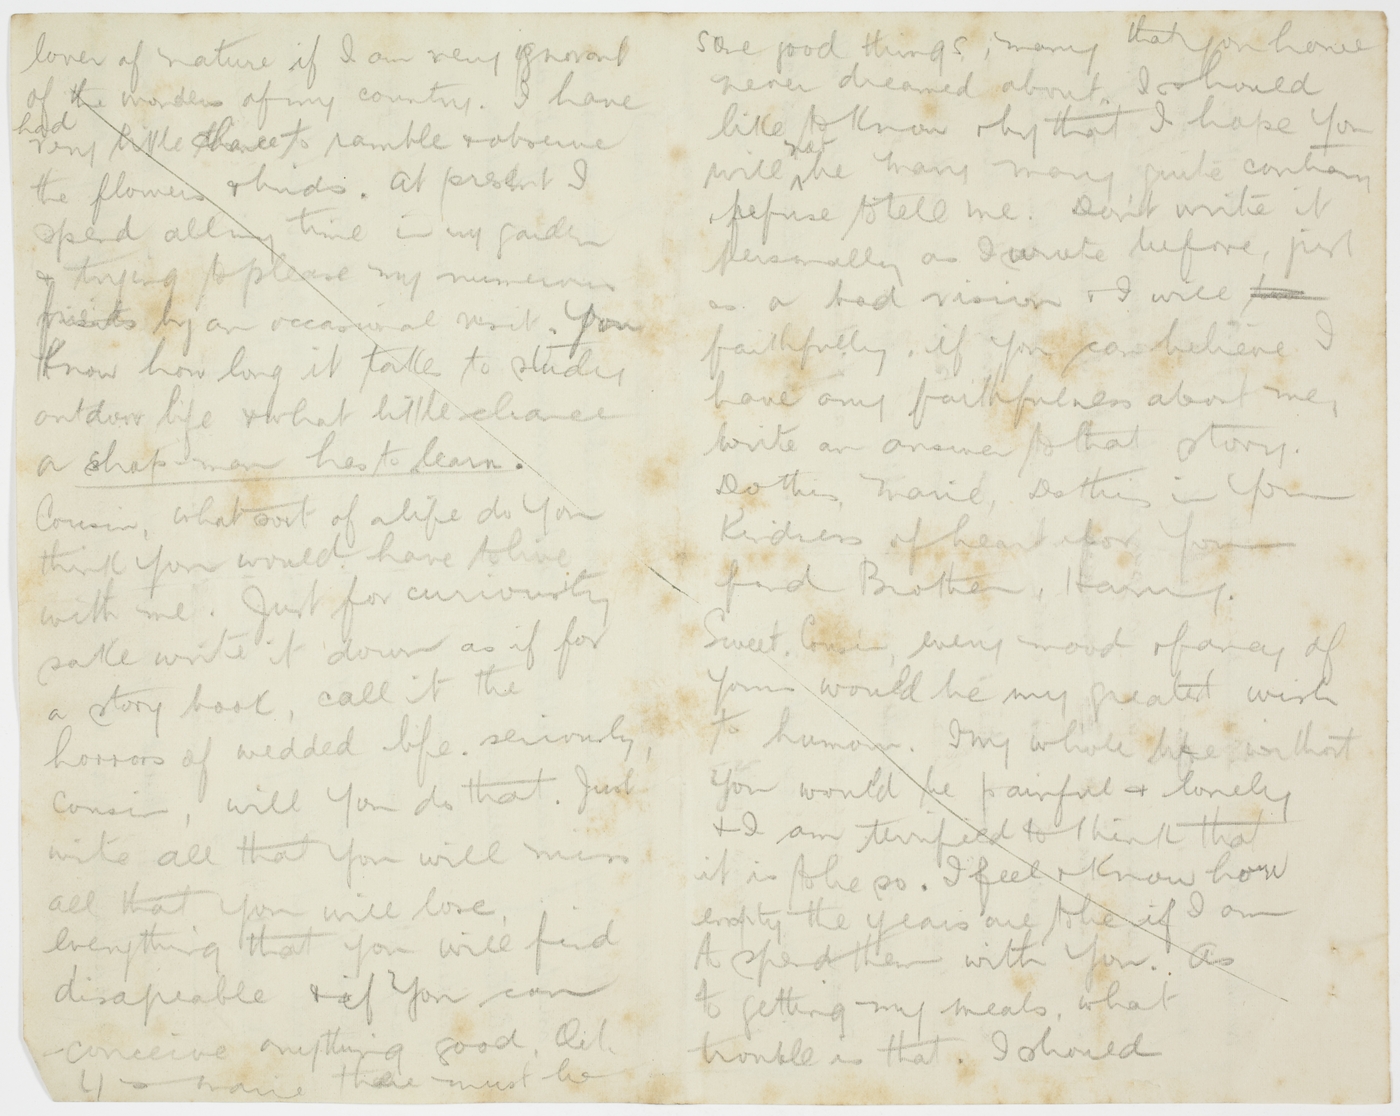 lover of nature if I am very ignorant
of the wonders of my country. I have
had
very little chance to ramble & observe
the flowers & birds. At present I
spend all my time in my garden
& trying to please my numerous
friends by an occasional visit. You
know how long it takes to study
outdoor life & what little chance
a shop-man has to learn.
Cousin, what sort of a life do you
think you would have to live
with me. Just for curiosity
sake write it down as if for
a story book, call it the
horrors of wedded life. seriously,
Cousin, will you do that. Just
write all that you will miss
all that you will lose,
everything that you will find
disagreeable & if you can
conceive anything good,
Marie there must be
some good things, many that you have
never dreamed about. I should
like to know why that I hope you
not
will be many many quite contrary
refuse to tell me. Don't write it
personally as I wrote before, just
as a bad vision & I will
faithfully, if you can believe I
have any faithfulness about me,
write an answer to that story.
Do this, Marie, Do this in your
Kindness of heart for your
fond Brother, Harry.
Sweet Cousin, every mood or fancy of
yours would be my greatest wish
to humour. My whole life without
you would be painful & lonely
& I am terrified to think that
it is to be so. I feel & know how
empty the years are to be if I am
to spend them with you. As
to getting my meals, what
trouble is that. I should